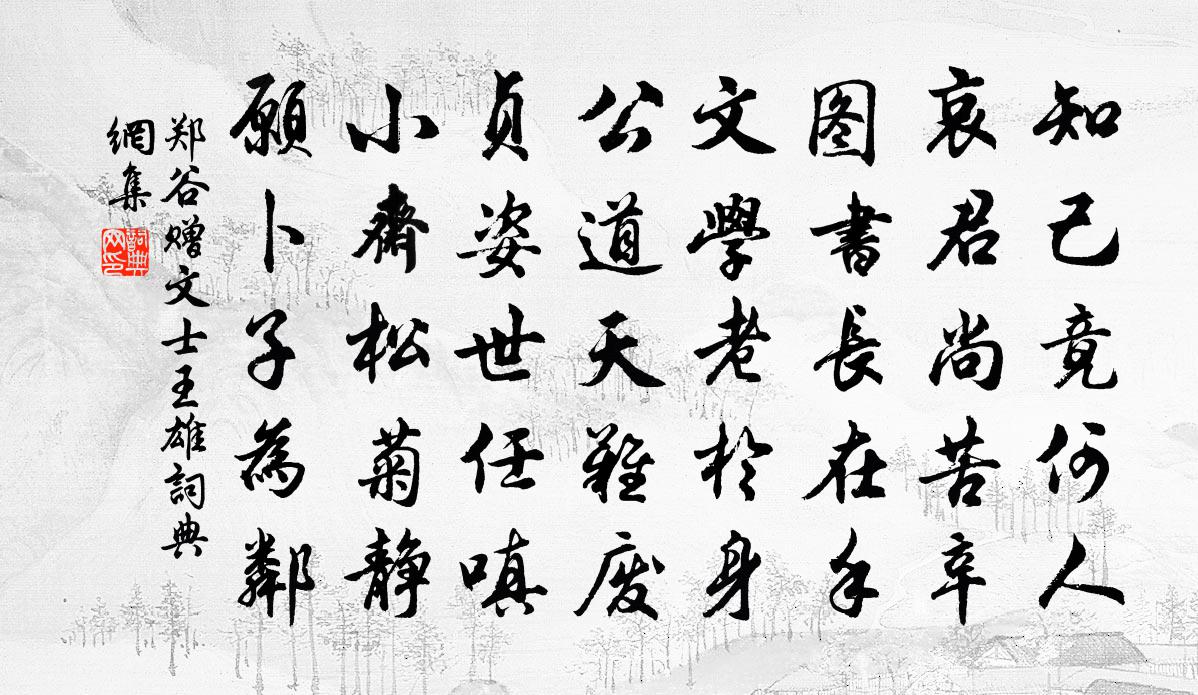 知己竟何人
哀君尚苦辛
图書長在手
文學老於身
公道天難废
贞姿世任嗔
小齋松菊静
願卜子為鄰
郑谷赠文士王雄詞典
網集
詞典
网印